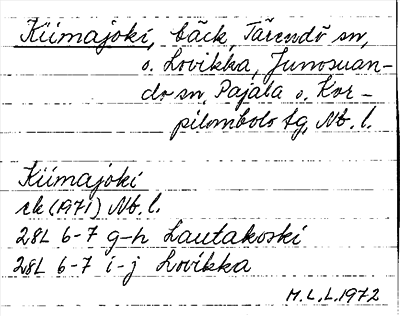 Kiimajoki, bäck, Tärendö sn,
o. Lovikka, Junosuan-
do sn, Pajala o. Kor-
pilombolo tg, Nb. l.
Kiimajoki
rk (1971) Nb. l.
28L 6-7 g-h Lautakoski
28L 6-7 i-j Lovikka
M.L.L. 1972